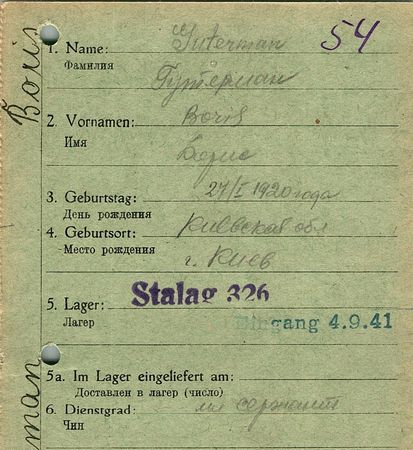 Boris
54
1. Name: Guterman
Фамилия
Гутерман
2. Vornamen: Boris
Имя
Борис
3. Geburtstag: 27/I 1920 года
День рождения
4. Geburtsort: Киевская обл
Место рождения
г. Киев
5. Lager: Stalag 326
Лагер
Eingang 4.9.41
5a. Im Lager eingeliefert am:
Доставлен в лагер (число)
6. Dienstgrad: мл сержант
Чин
man